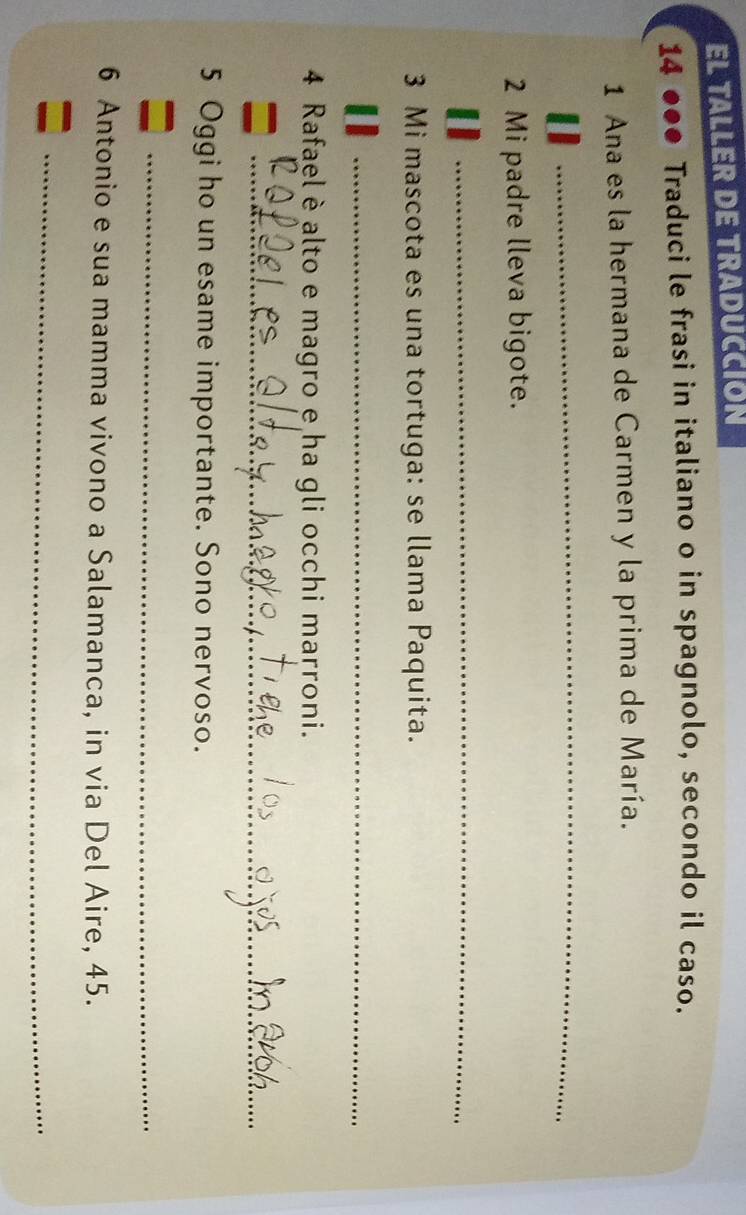 EL TALLER DE TRADUCCIÓN
14 ●●● Traduci le frasi in italiano o in spagnolo, secondo il caso.
1 Ana es la hermana de Carmen y la prima de María.
2 Mi padre lleva bigote.
3 Mi mascota es una tortuga: se llama Paquita.
4 Rafael è alto e magro e ha gli occhi marroni.
Rafael es alto y magro, tiene los ojos maron
5 Oggi ho un esame importante. Sono nervoso.
6 Antonio e sua mamma vivono a Salamanca, in via Del Aire, 45.